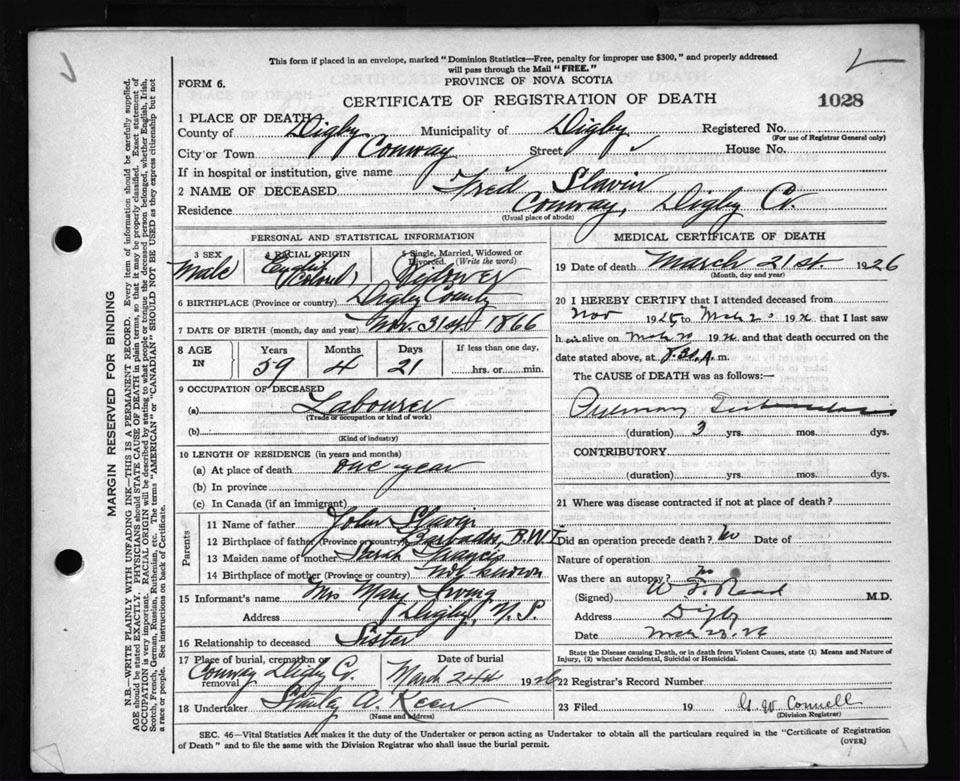 This form if placed in an envelope, marked "Dominion Statistics—Free, penalty for improper use $300," and properly addressed
will pass through the Mail "FREE."
FORM 6.
PROVINCE OF NOVA SCOTIA
CERTIFICATE OF REGISTRATION OF DEATH
1028
1 PLACE OF DEATH
County of Digby Municipality of Digby Registered No.
(For use of Registrar General only)
City or Town Conway Street House No.
If in hospital or institution, give name
2 NAME OF DECEASED Fred Slavin
Residence Conway, Digby Co.
(Usual place of abode)
PERSONAL AND STATISTICAL INFORMATION
3 SEX Male
4 RACIAL ORIGIN English (Colored)
5 Single, Married, Widowed or Divorced. (Write the word) Widower
6 BIRTHPLACE (Province or country) Digby County
7 DATE OF BIRTH (month, day and year) Nov. 31st. 1866
8 AGE IN Years Months Days If less than one day,
59 4 21 hrs. or min.
9 OCCUPATION OF DECEASED
(a) Labourer
(Trade or occupation or kind of work)
(b)
(Kind of industry)
10 LENGTH OF RESIDENCE (in years and months)
(a) At place of death one year
(b) In province
(c) In Canada (if an immigrant)
Parents
11 Name of father John Slavin
12 Birthplace of father (Province or country) Barbados, B.W.I
13 Maiden name of mother Sarah Francis
14 Birthplace of mother (Province or country) Not known
15 Informant's name Mrs Mary Irving
Address Digby, N.S.
16 Relationship to deceased Sister
17 Place of burial, cremation or removal Conway Digby Co.
Date of burial March 24th 1926
18 Undertaker Stanley A. Keen
(Name and address)
MEDICAL CERTIFICATE OF DEATH
19 Date of death March 21st. 1926
(Month, day and year)
20 I HEREBY CERTIFY that I attended deceased from
Nov 1925 to 19 that I last saw
h im alive on 19 and that death occurred on the
date stated above, at m.
The CAUSE of DEATH was as follows:—
Pulmonary Tuberculosis
(duration) 3 yrs. mos. dys.
CONTRIBUTORY
(duration) yrs. mos. dys.
21 Where was disease contracted if not at place of death?
Did an operation precede death? No Date of
Nature of operation
Was there an autopsy? No
(Signed) W. F. Read M.D.
Address Digby
Date Mch 23. 26
State the Disease causing Death, or in death from Violent Causes, state (1) Means and Nature of
Injury, (2) whether Accidental, Suicidal or Homicidal.
22 Registrar's Record Number
23 Filed 19 G. W. Connell
(Division Registrar)
SEC. 46—Vital Statistics Act makes it the duty of the Undertaker or person acting as Undertaker to obtain all the particulars required in the "Certificate of Registration
of Death" and to file the same with the Division Registrar who shall issue the burial permit.
(OVER)
MARGIN RESERVED FOR BINDING
N.B.—WRITE PLAINLY WITH UNFADING INK—THIS IS A PERMANENT RECORD. Every item of information should be carefully supplied.
AGE should be stated EXACTLY. PHYSICIANS should STATE CAUSE OF DEATH in plain terms, so that it may be properly classified. Exact statement of
OCCUPATION is very important. RACIAL ORIGIN will be described by stating to what people or tongue the deceased person belonged, whether English, Irish,
Scotch, French, German, Russian, Ruthenian, etc. The terms "AMERICAN" or "CANADIAN" SHOULD NOT BE USED as they express citizenship but not
a race or people. See instructions on back of Certificate.